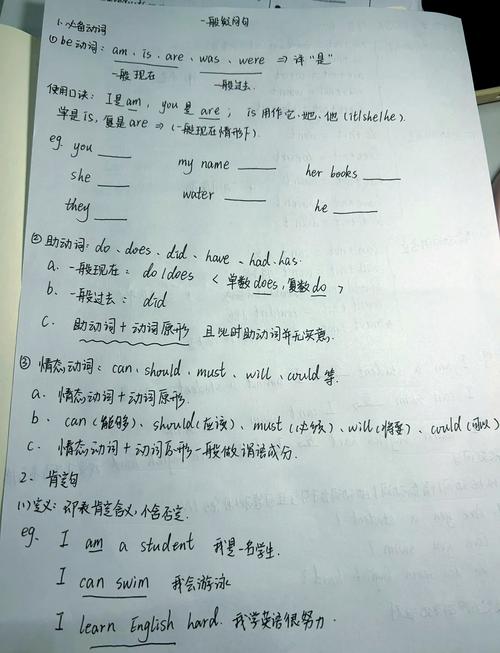 一般疑问句
1. 必备动词
① be动词: am、is、are、was、were ⇒ 译“是”
一般现在 一般过去
使用口诀: I是am, you 是 are; is 用作它、她、他 (it|she|he).
单是is, 复是are ⇒ (一般现在情形下)
eg. you ____ my name ____ her books ____
she ____ water ____ he ____
they ____
② 助动词: do、does、did、have、had、has.
a. 一般现在: do/does < 单数does, 复数do >
b. 一般过去: did
c. 助动词+动词原形 且此时助动词并无实意.
③ 情态动词: can、should、must、will、could 等.
a. 情态动词+动词原形.
b. can(能够)、should(应该)、must(必须)、will(将要)、could(可以)
c. 情态动词+动词原形一般做谓语成分.
2. 肯定句
(1) 定义: 即表肯定含义, 不含否定.
eg. I am a student 我是一名学生.
I can swim 我会游泳
I learn English hard. 我学英语很努力.